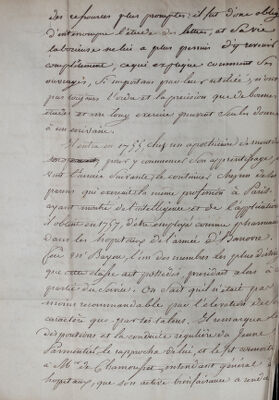 des ressources plus promptes; il fut donc obligé
d'interrompre l'étude des lettres, et sa vie
laborieuse ne lui a plus permis d'y revenir
complètement, ce qui explique comment ses
ouvrages, si importans par leur utilité, n'ont
pas toujours l'ordre et la précision que de bonnes
études et un long exercice peuvent seules donner
à un écrivain.
Il entra en 1755 chez un apothicaire de
pour y commencer son apprentissage,
vint l'année suivante, le continuer chez un de ses
parens qui exerçait la même profession à Paris.
ayant montré de l'intelligence et de l'application
il obtint en 1757, d'être employé comme pharmacien
dans les hôpitaux de l'armée d'Hanovre.
feu Mr Bayen, l'un des membres les plus distingués
que cette classe ait possédés, présidait alors à
partie du service. On sait qu'il n'était pas
moins recommandable par l'élévation de
caractère que par ses talens. Il remarqua les
dispositions et la conduite régulière du jeune
Parmentier le rapprocha de lui, et le fit connaître
à Mr de Chamousset, intendant général des
hôpitaux, que son active bienfaisance a rendu